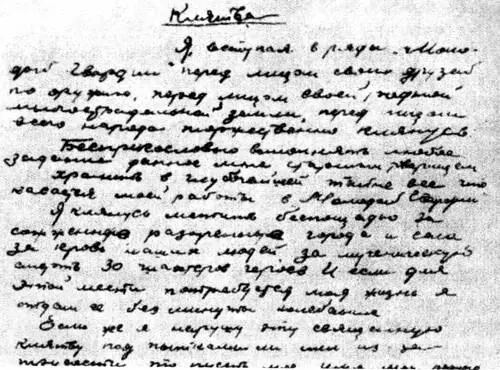 Клятва
Я, вступая в ряды „Моло-
дой Гвардии" перед лицом своих друзей
по оружию, перед лицом своей, родной
многострадальной земли, перед лицом
всего народа торжественно клянусь
Беспрекословно выполнять любое
задание данное мне старшим товарищем
хранить в глубочайшей тайне все что
касается моей работы в Молодой Гвардии
Я клянусь мстить беспощадно за
сожженные разоренные города и села
за кровь наших людей за мученическую
смерть 30 шахтеров героев И если для
этой мести потребуется моя жизнь я
отдам ее без минуты колебания
Если же я нарушу эту священную
клятву под пытками ли или из за
трусости то пусть мое имя мои родные